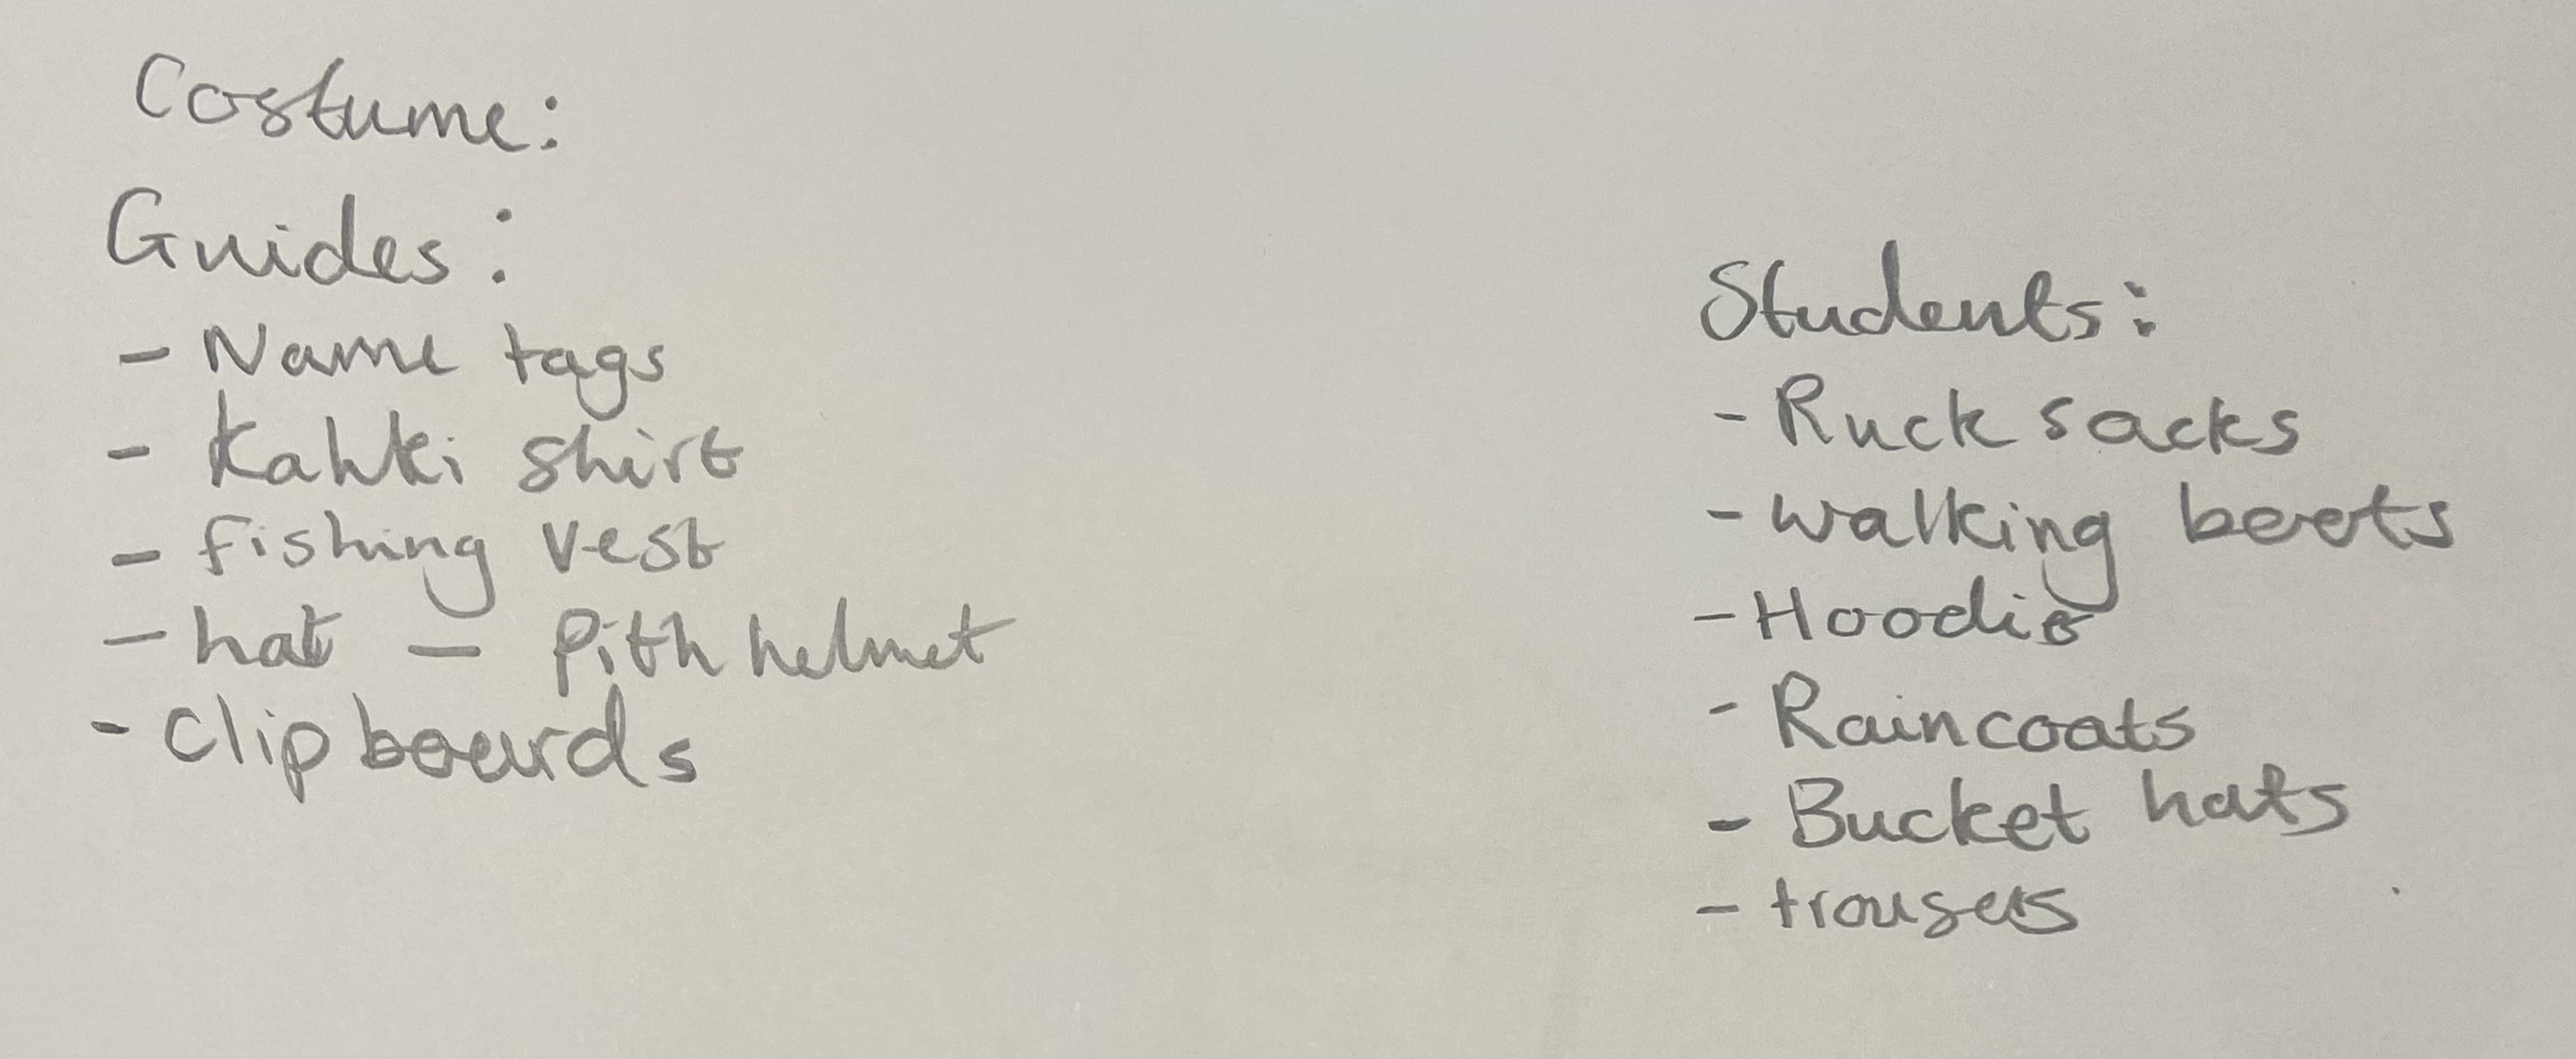 Costume:
Guides:
- Name tags
- Kahki shirt
- fishing vest
- hat - Pith helmet
- Clip boards
Students:
- Ruck sacks
- walking boots
- Hoodie
- Raincoats
- Bucket hats
- trousers